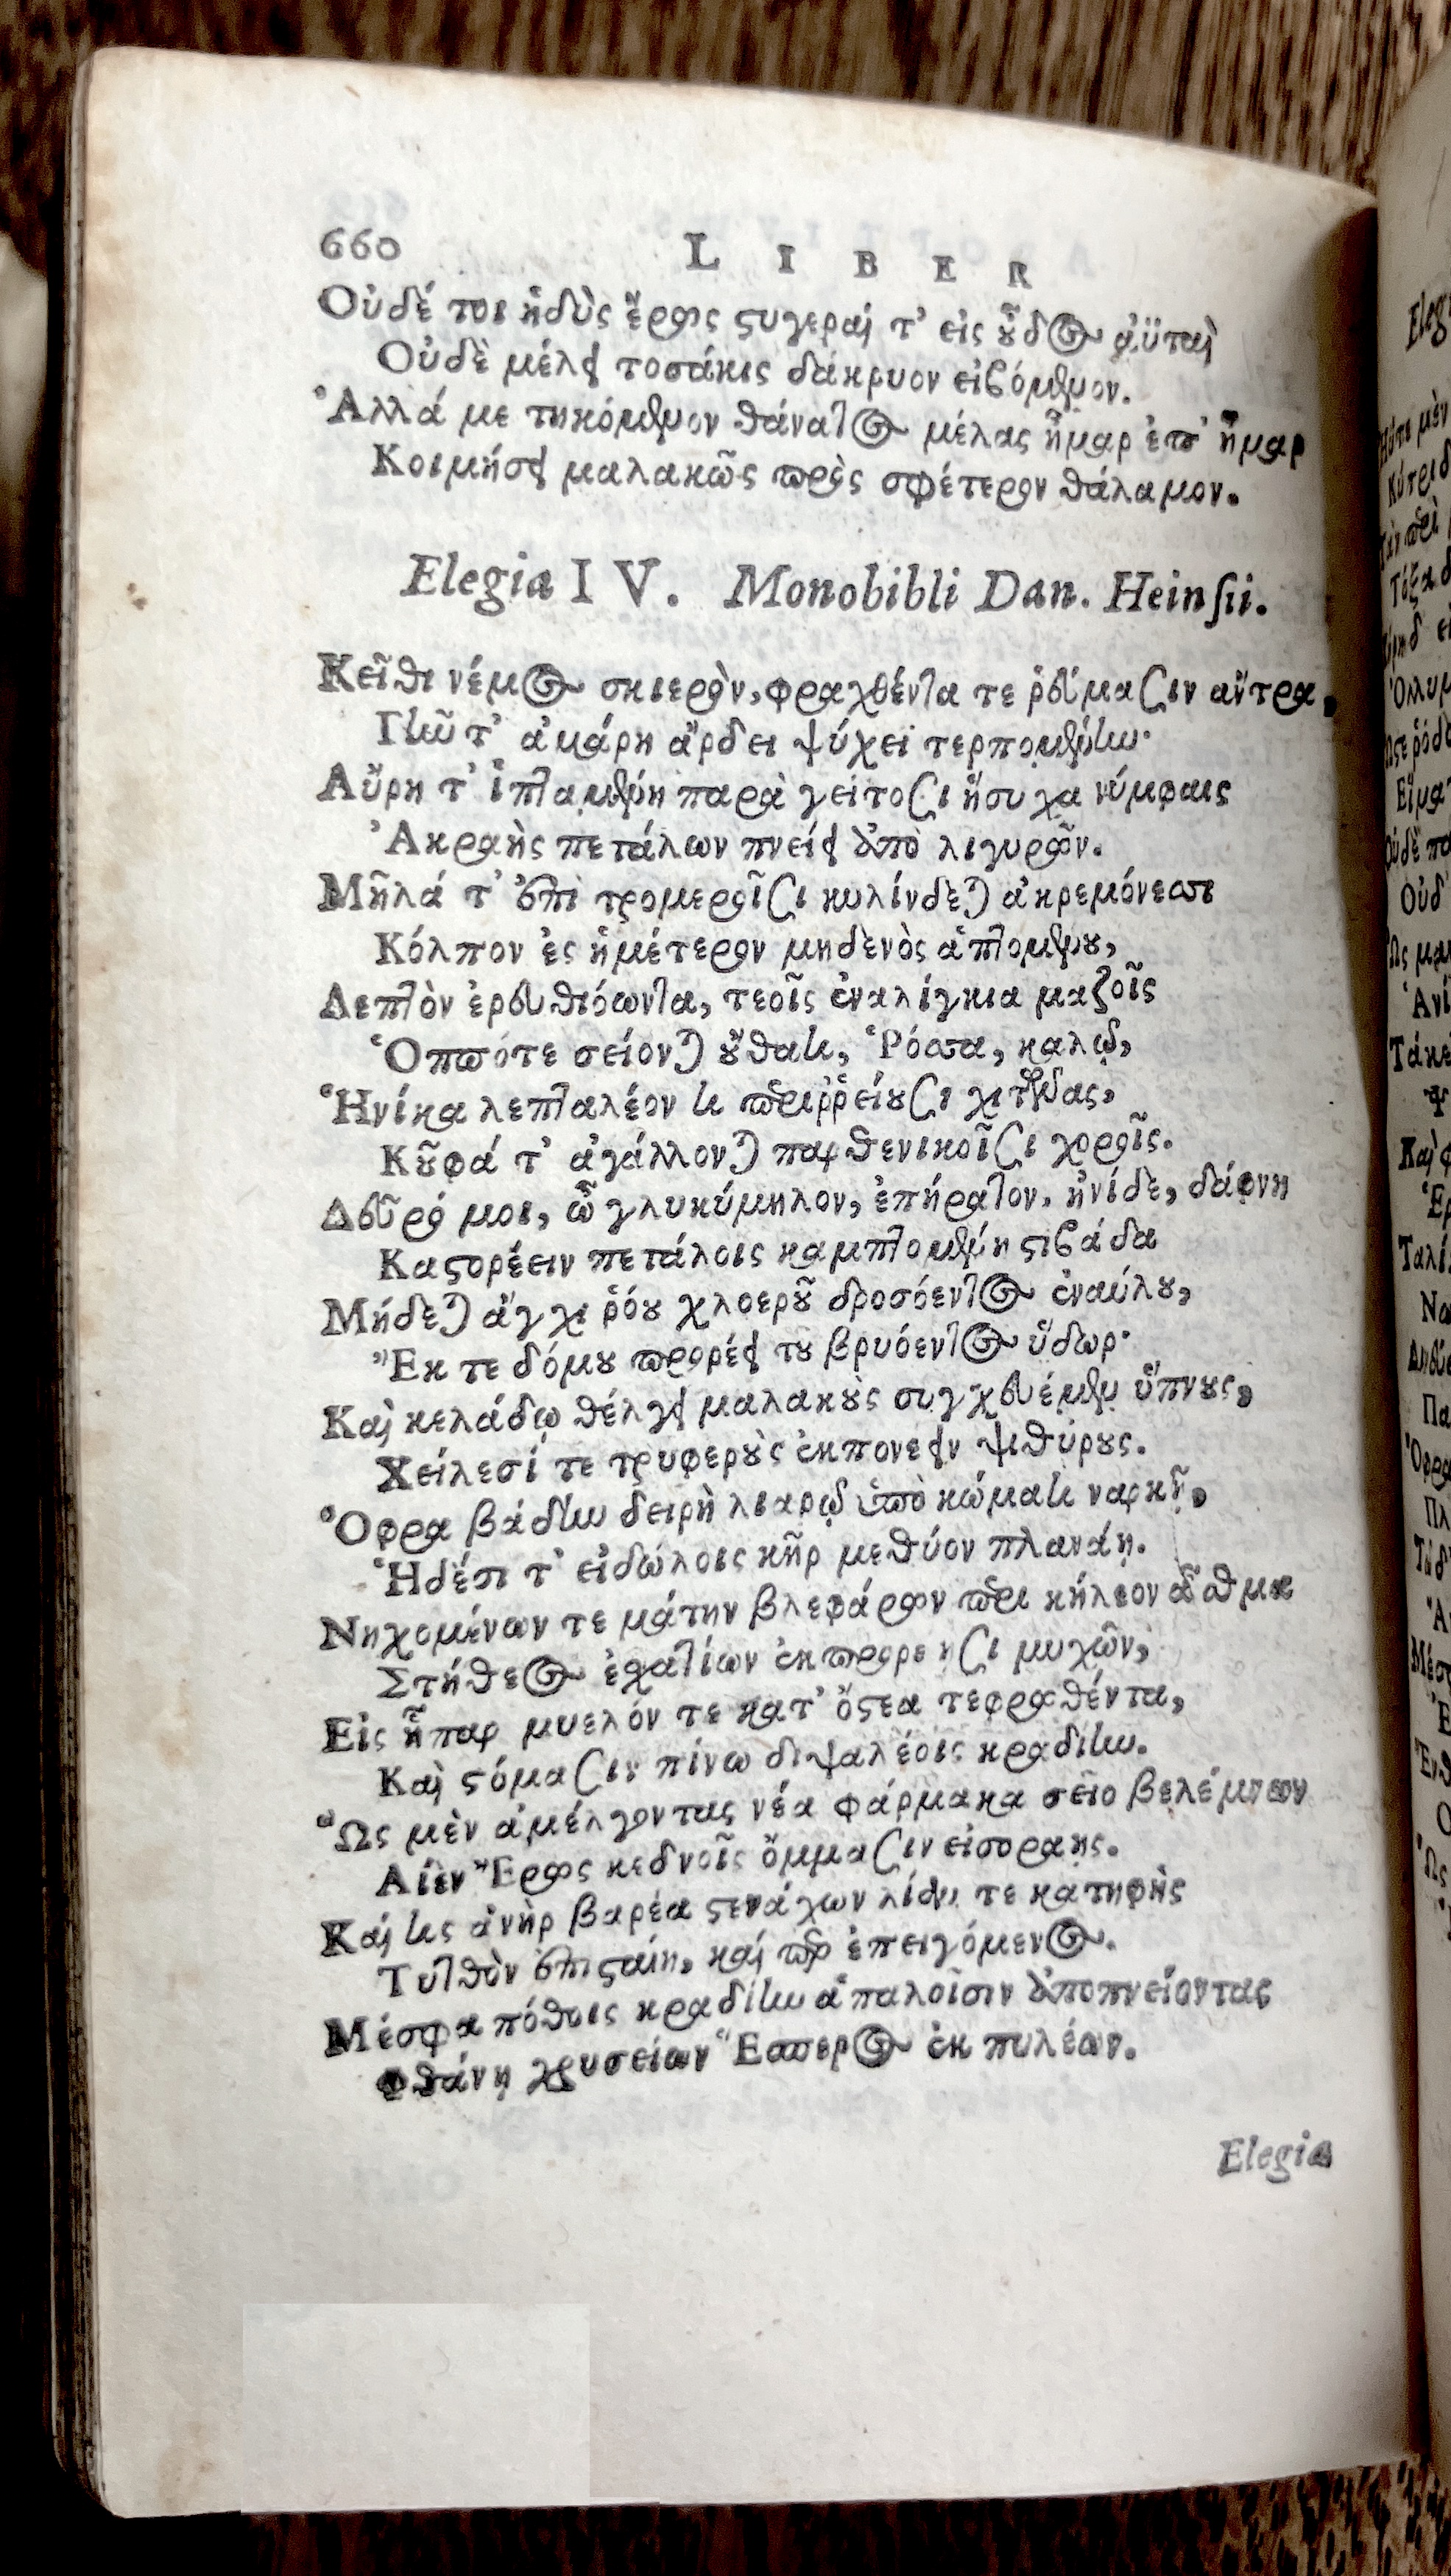 660 LIBER
Οὐδέ τοι ἡδὺς ἔρως στυγεραί τ' εἰς οὖδος ἀϋταὶ
Οὐδὲ μέλει τοσάκις δάκρυον εἰβόμενον.
Ἀλλά με τηκόμενον θάνατος μέλας ἦμαρ ἐπ' ἦμαρ
Κοιμήσει μαλακῶς πρὸς σφέτερον θάλαμον.
Elegia IV. Monobibli Dan. Heinsii.
Κεῖθι νέμος σκιερὸν, φραχθέντα τε ῥεύμασιν ἄντρα,
Γῆν τ' ἀμάρη ἄρδει ψύχει τερπομένην·
Αὔρη τ' ἱπταμένη παρὰ γείτοσι ἥσυχα νύμφαις
Ἀκραὴς πετάλων πνείει ἀπὸ λιγυρῶν.
Μῆλά τ' ἐπὶ τρομεροῖσι κυλίνδεται ἀκρεμόνεσσι
Κόλπον ἐς ἡμέτερον μηδενὸς ἁπτομένου,
Λεπτὸν ἐρευθιόωντα, τεοῖς ἐναλίγκια μαζοῖς
Ὁππότε σείονται οὔθατι, Ῥόσσα, καλῷ,
Ἡνίκα λεπταλέον τι περιῤῥείουσι χιτῶνας,
Κοῦφά τ' ἀγάλλονται παρθενικοῖσι χοροῖς.
Δεῦρό μοι, ὦ γλυκύμηλον, ἐπήρατον, ἠνίδε, δάφνη
Καστορέειν πετάλοις καμπτομένη στιβάδα
Μήδεται ἄγχι ῥόου χλοεροῦ δροσόεντος ἐναύλου,
Ἔκ τε δόμου προρέει τοῦ βρυόεντος ὕδωρ·
Καὶ κελάδῳ θέλγει μαλακοὺς συγχευέμεν ὕπνους,
Χείλεσί τε τρυφεροὺς ἐκπονεῖν ψιθύρους.
Ὄφρα βάδην δειρὴ λιαρῷ ὑπὸ κώματι ναρκῇ,
Ἡδέϊ τ' εἰδώλοις κῆρ μεθύον πλανάῃ.
Νηχομένων τε μάτην βλεφάρων περὶ κήλεον ἆσθμα
Στήθεος ἐσχατίων ἐκπρορεῃσι μυχῶν,
Εἰς ἧπαρ μυελόν τε κατ' ὄστεα τεφραθέντα,
Καὶ στόμασιν πίνω διψαλέοις κραδίην.
Ὣς μὲν ἀμέλγοντας νέα φάρμακα σεῖο βελέμνων
Αἰὲν Ἔρως κεδνοῖς ὄμμασιν εἰσοράῃς.
Καί τις ἀνὴρ βαρέα στενάχων λίην τε κατηφὴς
Τυτθὸν ἐπισταίη, καί περ ἐπειγόμενος.
Μέσφα πόθοις κραδίην ἁπαλοῖσιν ἀποπνείοντας
Φθάνῃ χρυσείων Ἕσπερος ἐκ πυλέων.
Elegia